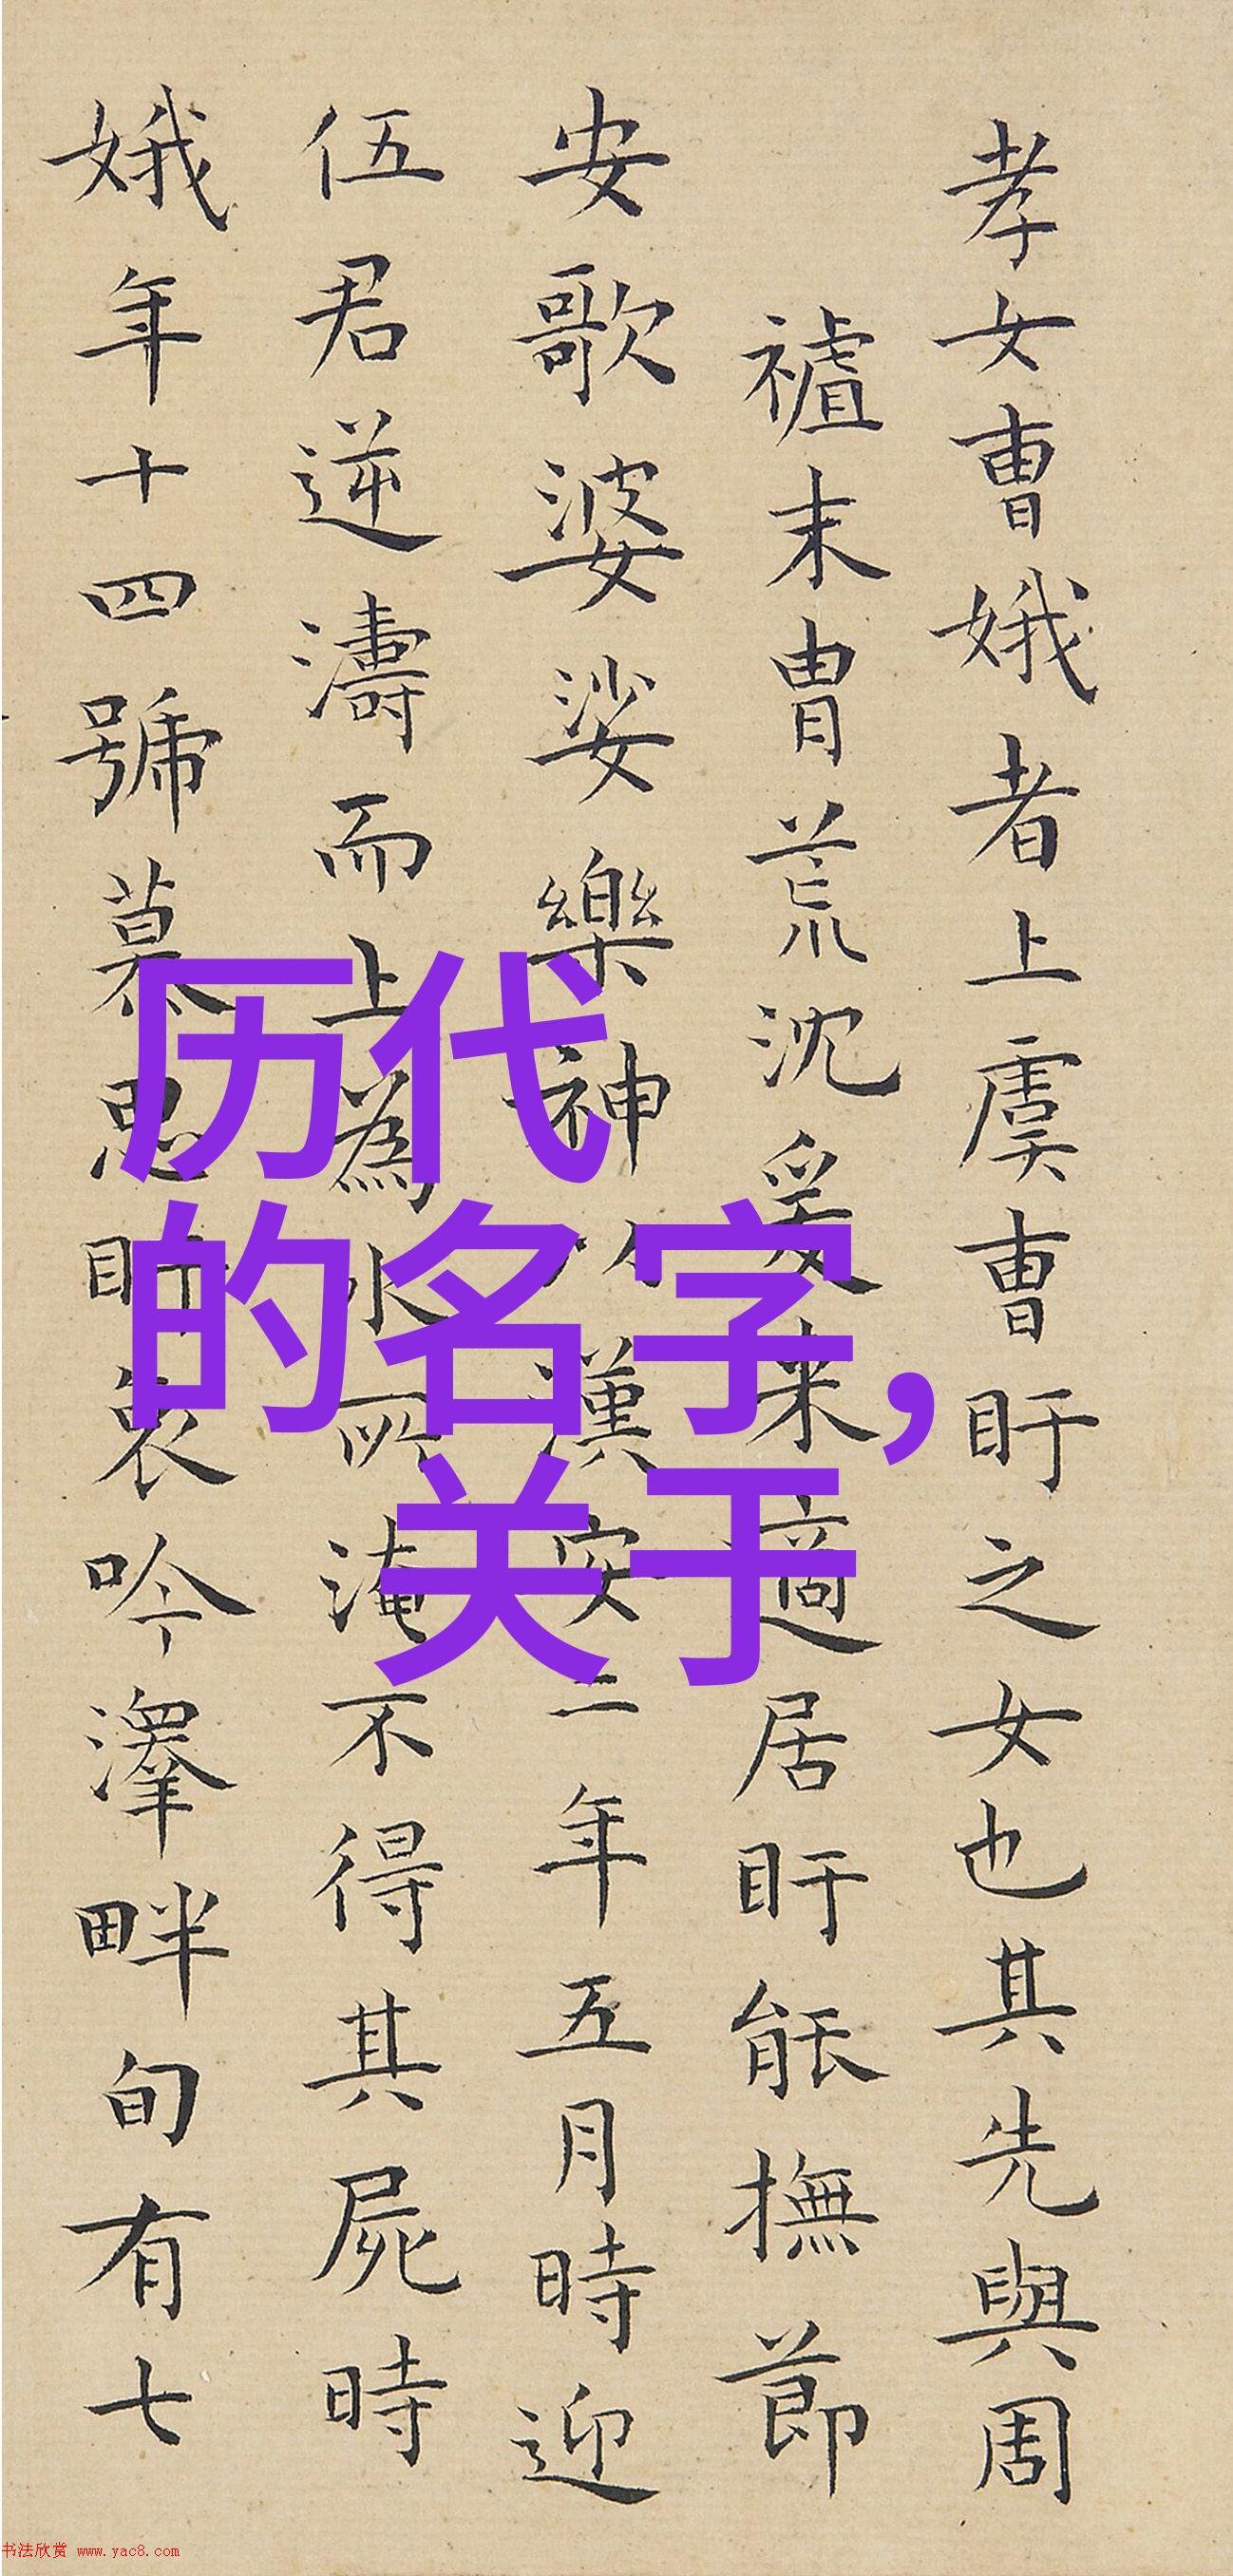 孝女曹娥者上虞曹盱之女也其先與周
末胄荒沈爰来適居盱能撫節
安歌婆娑樂神漢安二年五月時迎
伍君逆濤而上為水所淹不得其屍時
娥年十四號慕思盱哀吟澤畔旬有七
历代
的名字，
关于
书法欣赏 www.yac8.com